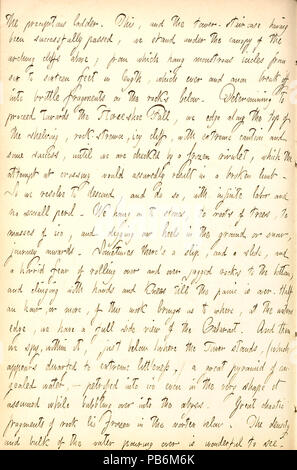 the precipitous ladder. This, and the Tower-staircase having
been successfully passed, we stand under the canopy of the
arching cliffs above, from which hang monstrous icicles from
six to sixteen feet in length, which ever and anon break off
into brittle fragments on the rocks below. Determining to
proceed towards the Horseshoe Fall, we edge along the top of
the shelving, rock-strewn, icy cliff, with extreme caution and
some success, until we are checked by a frozen rivulet, which the
attempt at crossing would assuredly result in a broken limb.
So we resolve to descend, and do so, with infinite labor and
no small peril. We hang on to stones, to roots of trees, to
masses of ice, and digging our heels in the ground or snow,
journey onwards. Sometimes there's a slip, and a slide, and
a horrid fear of rolling over and over jagged rocks to the bottom,
and clinging with hands and knees till the panic is over. Half
an hour, or more, of this work brings us to where, at the waters
edge, we have a full side view of the Cataract. And then
we spy, within it, just below where the Tower stands, (which
appears dwarfed to extreme littleness,) a great pyramid of con-
gealed water, — petrified into ice even in the very shape it
assumed while bubbling over into the abyss. Great chaotic
fragments of rock lie frozen in the vortex below. The density
and bulk of the water pouring over is wonderful to see.
alamy
PB6M6K